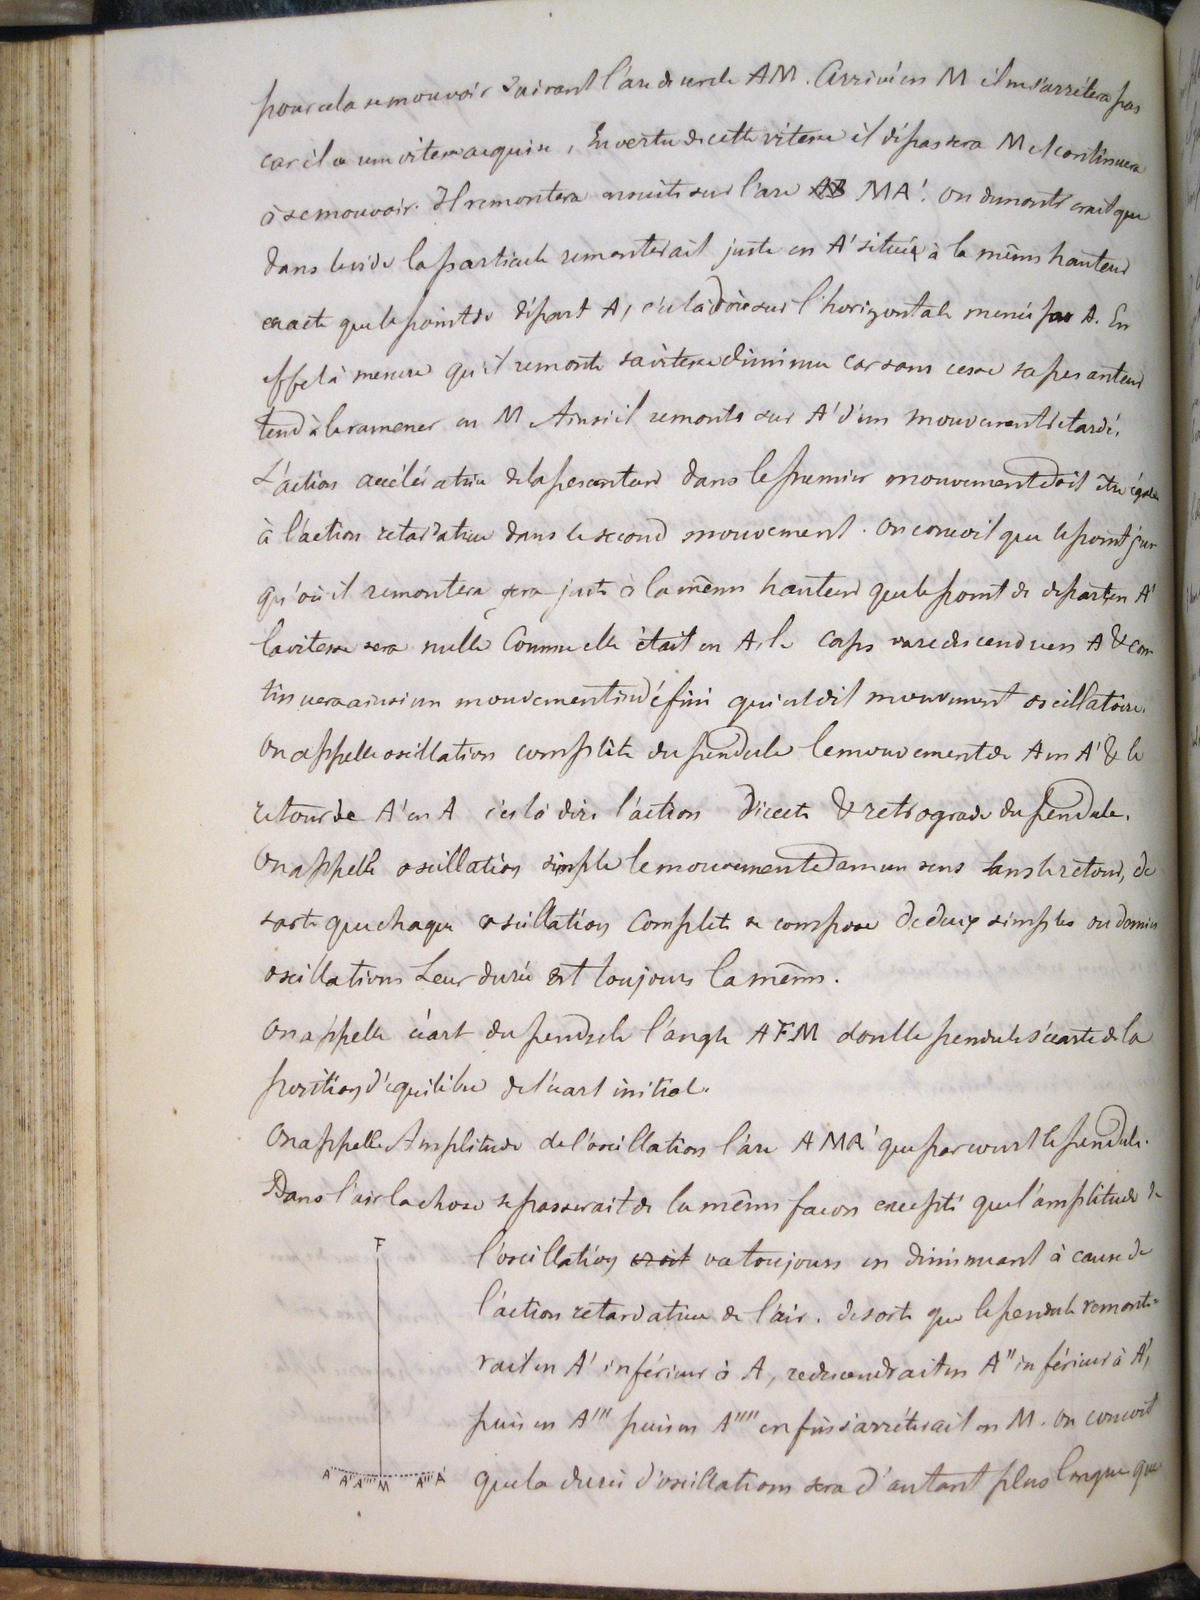 pour cela se mouvoir suivant l'arc de cercle AM. Arrivé en M il ne s'arrêtera pas
car il a une vitesse acquise, En vertu de cette vitesse il dépassera M et continuera
à se mouvoir. Il remontera ensuite sur l'arc AB MA'. On démontrerait que
dans le vide la particule remonterait juste en A' située à la même hauteur
exacte que le point de départ A, c'est à dire sur l'horizontale menée par A. En
effet à mesure qu'il remonte sa vitesse diminue car sans cesse sa pesanteur
tend à le ramener en M Ainsi il remonte sur A' d'un mouvement retardé.
L'action accélératrice de la pesanteur dans le premier mouvement doit être égale
à l'action retardatrice dans le second mouvement. On conçoit que le point jus
qu'où il remontera sera juste à la même hauteur que le point de départ en A'
la vitesse sera nulle Comme elle était en A, le corps va redescendre vers A & con
tinuera ainsi un mouvement indéfini qui est dit mouvement oscillatoire.
On appelle oscillation complète du pendule le mouvement de A en A' & le
retour de A' en A c'est à dire l'action directe & retrograde du pendule.
On appelle oscillation simple le mouvement dans un sens sans le retour, de
sorte que chaque oscillation complète se compose de deux simples ou demies
oscillations Leur durée est toujours la même.
On appelle écart du pendule l'angle AFM dont le pendule s'écarte de la
position d'équilibre de l'écart initial.
On appelle Amplitude de l'oscillation l'arc AMA' que parcourt le pendule.
Dans l'air la chose se passerait de la même façon excepté que l'amplitude de
F
l'oscillation va toujours en diminuant à cause de
l'action retardatrice de l'air. de sorte que le pendule remonte-
rait en A' inférieur à A, redescendrait en A'' inférieur à A',
puis en A''' puis en A'''' enfin s'arrêterait en M. On conçoit
A A'' A'''' M A''' A'
que la durée d'oscillations sera d'autant plus longue que